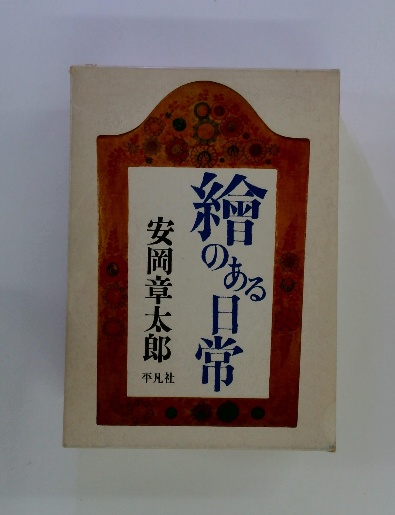 繪のある日常
安岡章太郎
平凡社